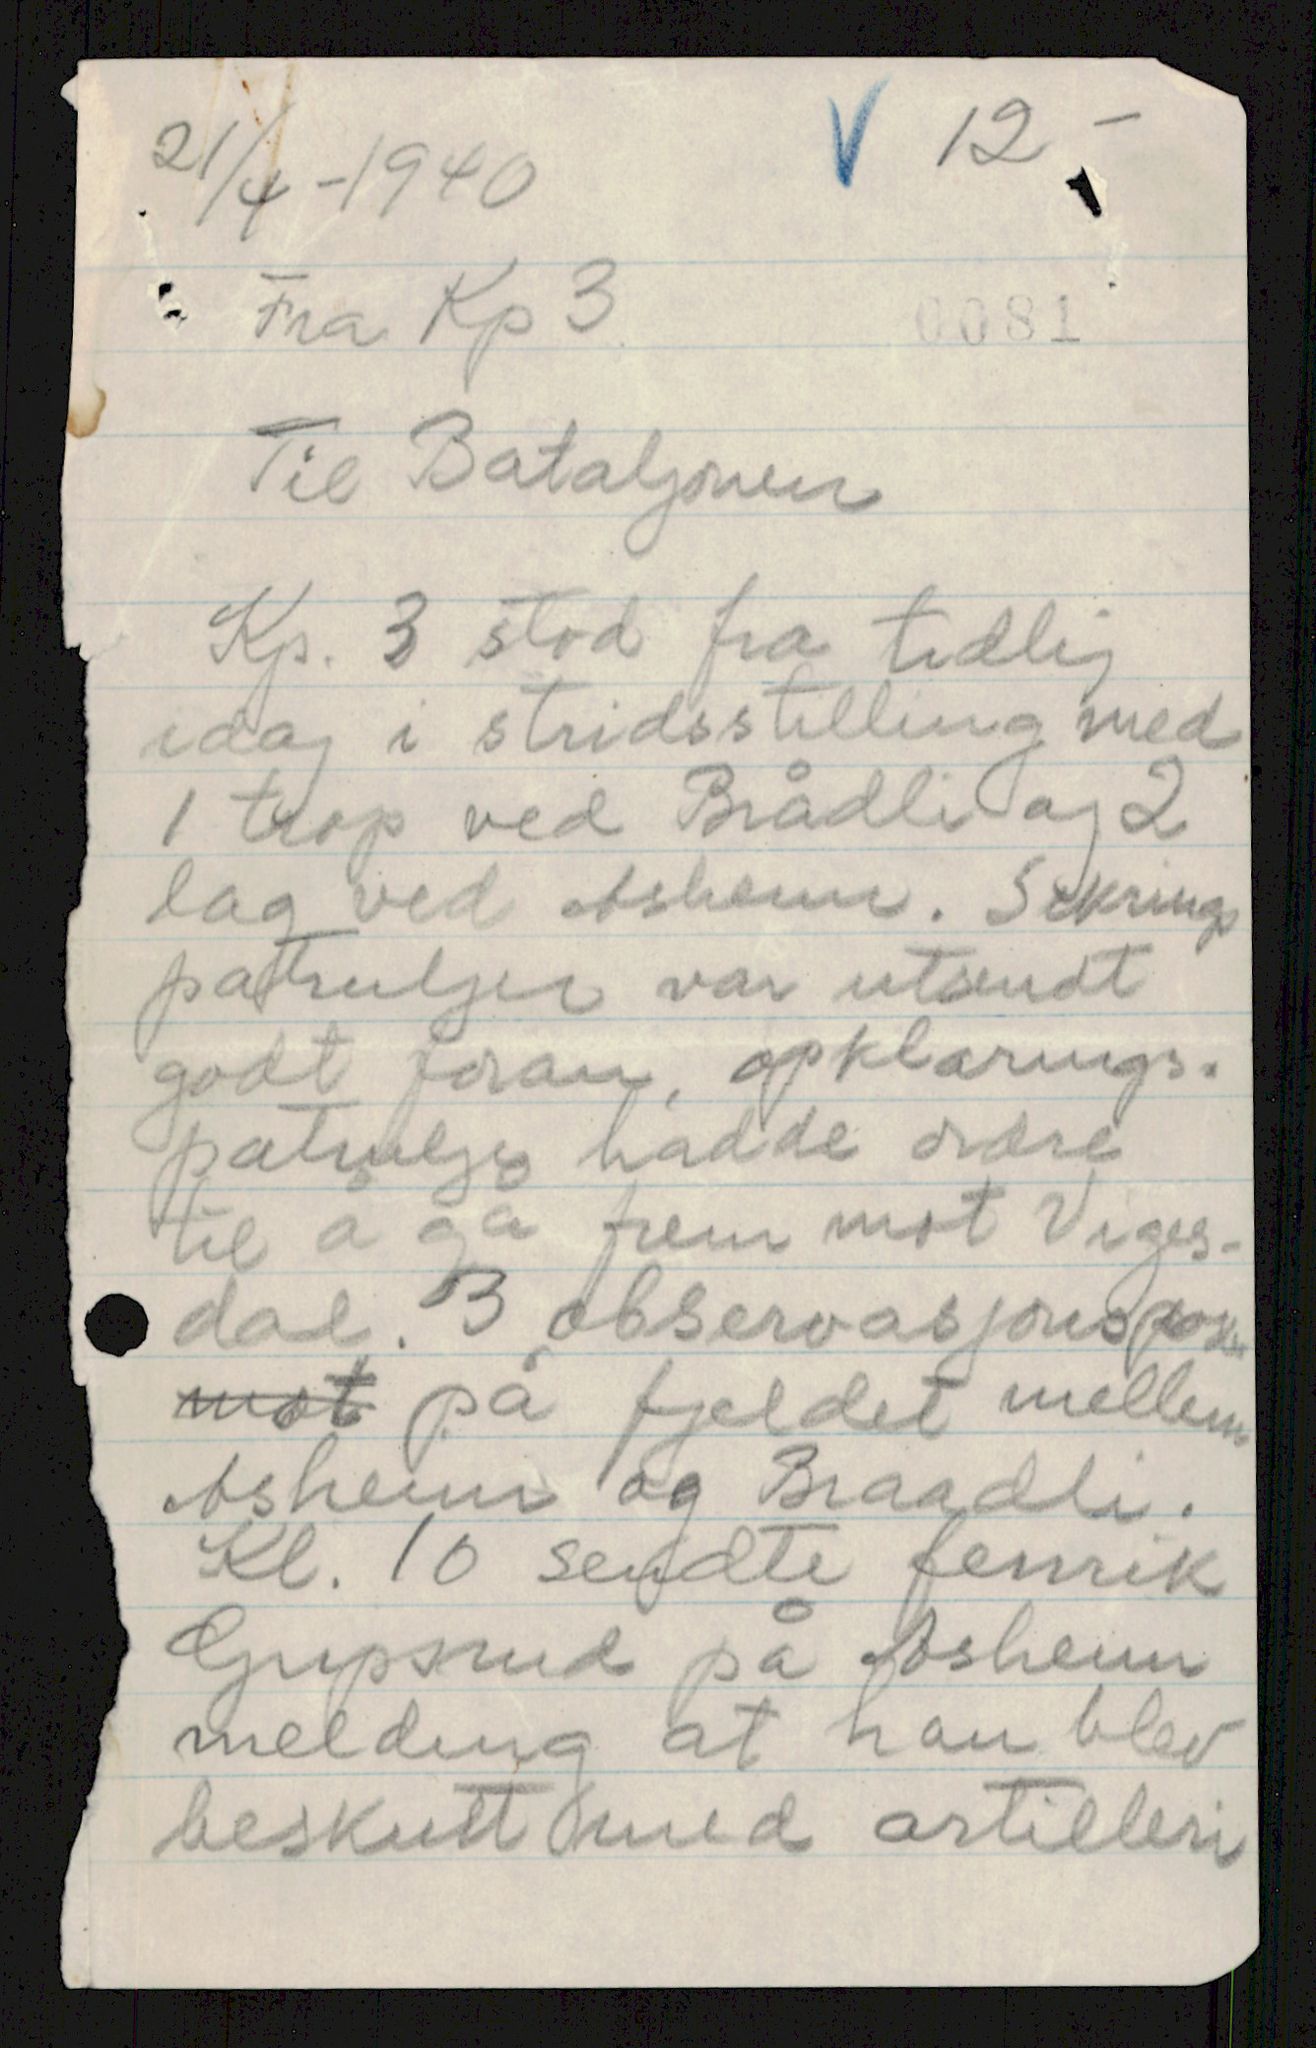 21/4 - 1940 V 12 -
Fra Kp 3
0081
Til Bataljonen
Kp. 3 stod fra tidlig
idag i stridsstilling med
1 trop ved Brådli og 2
lag ved Asheim. Sikrings
patruljer var utsendt
godt foran, opklarings-
patrulje hadde ordre
til å gå frem mot Viges-
dal. 3 observasjonsposter
mot på fjeldet mellem
Asheim og Braadli.
Kl. 10 sendte fenrik
Gjupsrud på Asheim
melding at han blev
beskutt med artilleri